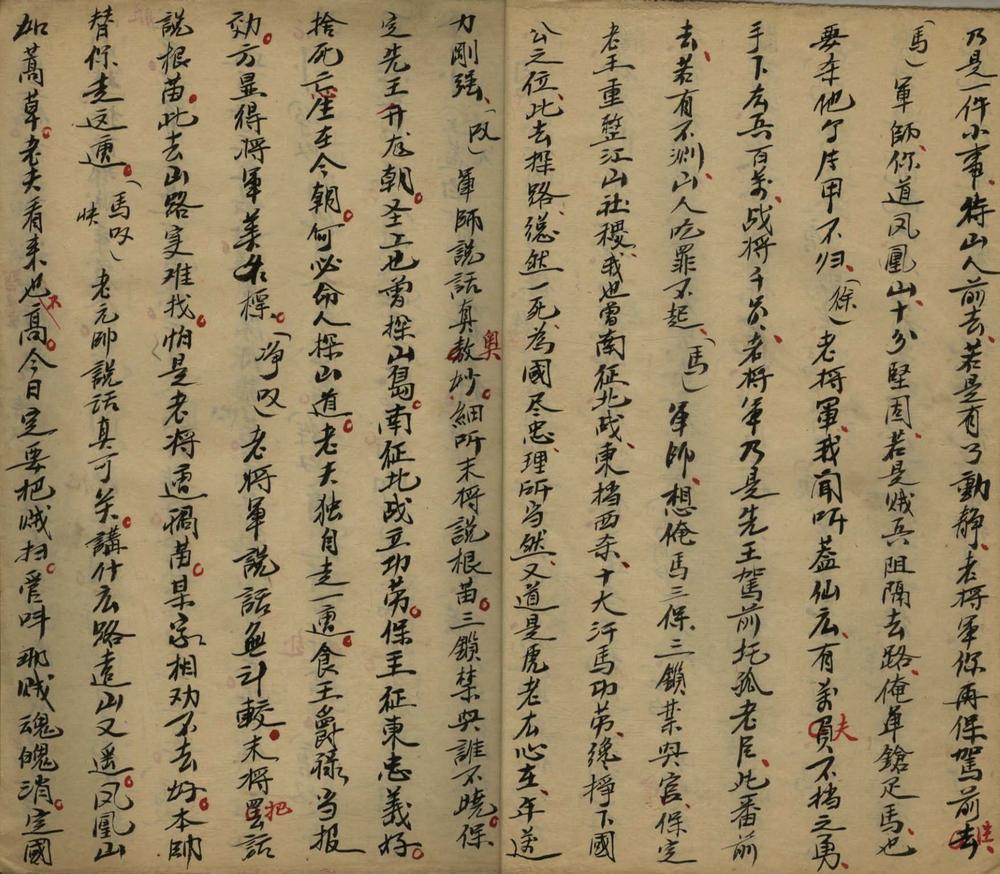 乃是一件小事、待山人前去、若是有了動静、老将軍你再保駕前去往、
（馬）軍師、你道凤凰山、十分堅固、若是贼兵阻隔去路、俺单鎗疋馬、也
要杀他个片甲不归、（徐）老将軍、我闻听盖仙広、有萬夫不挡之勇、
手下有兵百萬、战将千員、老将軍乃是先王駕前托孤老臣、此番前
去、若有不测、山人吃罪不起、（馬）軍師、想俺馬三保、三鎖禁與宫、保定
老王重整江山社稷、我也曾南征北战、東挡西杀、十大汗馬功劳、纔挣下國
公之位、此去探路、縂然一死、為國尽忠、理所当然、又道是虎老力心在、年邁
力剛强、（叹）軍師説話真教奥妙、細听末将説根苗。三鎖禁與誰不晓。保
定先王升龙朝。圣上也曾探山島。南征北战立功劳。保主征東忠義好。
捨死忘生在今朝。何必命人探山道。老夫独自走一遭。食王爵禄当报
効。方显得将軍美名標。（净叹）老将軍説話無計較。末将把話
説根苗。此去山路实难找。怕是老将遭祸苗。某家相劝不去好。本帅
替你走这遭。（馬叹）快 老元帅説話真可笑。講什広路遠山又遥。凤凰山
如蒿草。老夫看来也不高。今日定要把贼扫。管叫那贼魂魄消。定國